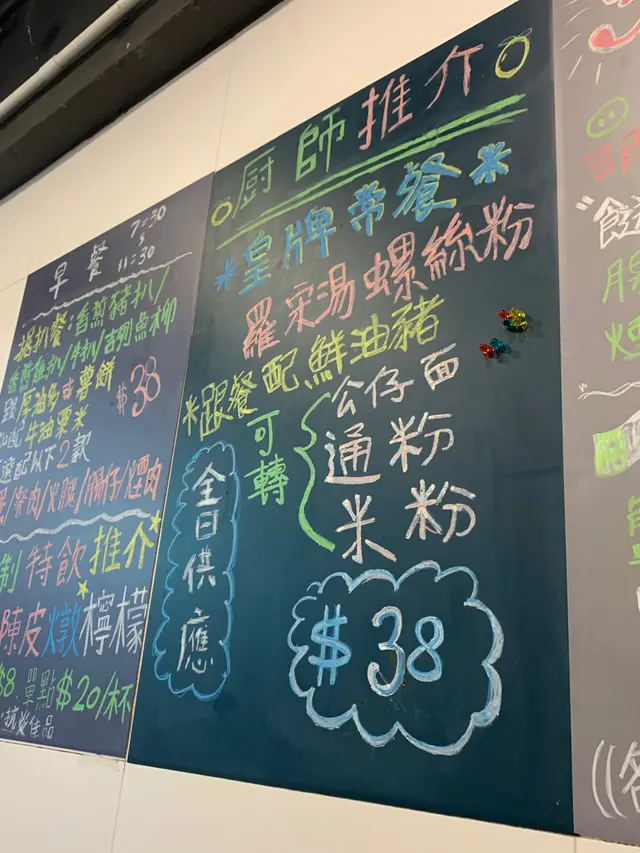 早餐 7:30
至
11:30
鋸扒餐:香煎豬扒/
香煎雞扒/牛扒/吉列魚柳
跟 厚油多或薯餅
加配 牛油粟米 $38
選配以下2款
蛋/餐肉/火腿/腸仔/煙肉
制特飲推介
陳皮燉檸檬
$8 單點$20/杯
佳品
厨師推介
*皇牌常餐*
羅宋湯螺絲粉
*跟餐配鮮油豬
可轉
公仔面
通粉
米粉
全日供應
$38